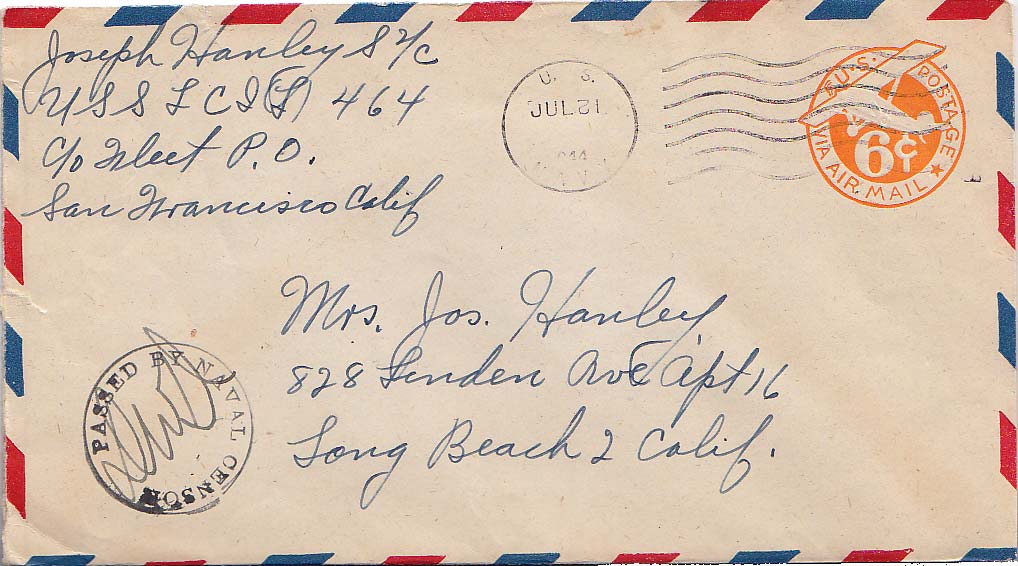 Joseph Hanley S 2/c
USS LCI(L) 464
c/o Fleet P.O.
San Francisco Calif
U. S.
JUL 21
U.S. POSTAGE
VIA AIR MAIL
6¢
Mrs. Jos. Hanley
828 Linden Ave Apt 16
Long Beach 2 Calif.
PASSED BY NAVAL CENSOR